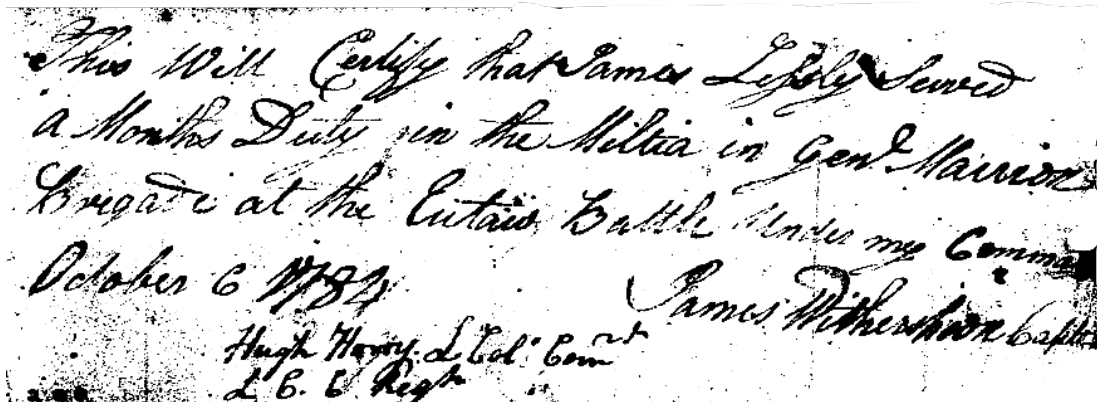 This Will Certify that James Lessly Served
a Months Duty in the Miltia in Genl. Marrion
Brigade at the Eutaw Battle Under my Comma
October 6 1784
James Witherspoon Captn
Hugh Horry L Col. Comdt
L C C Regt